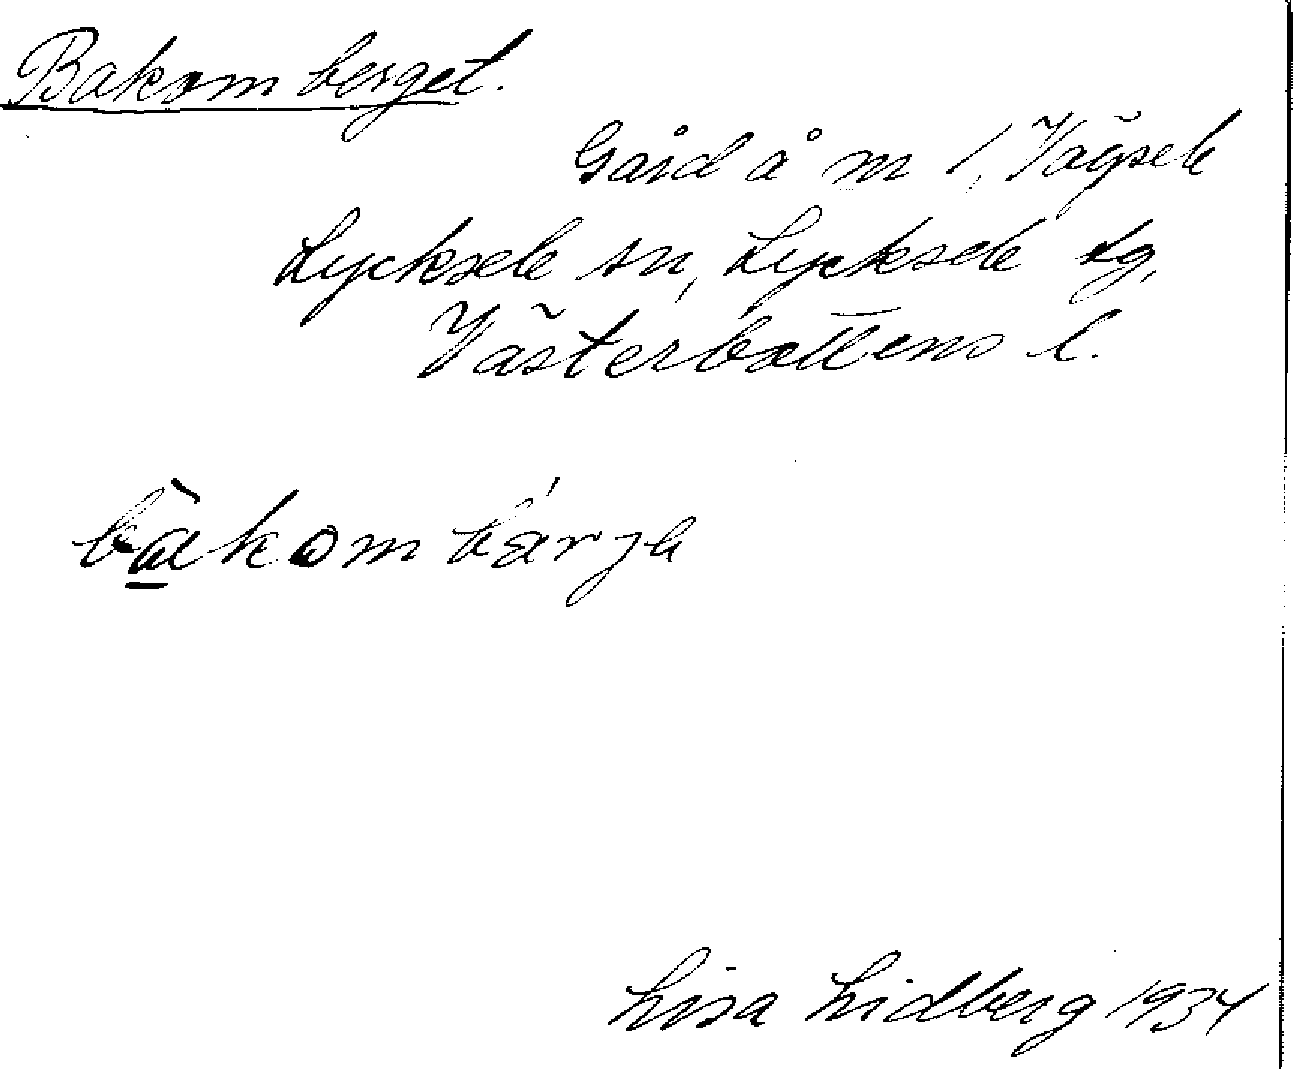 Bakom berget.
Gård å m 1, Vägsele
Lycksele sn, Lycksele tg,
Västerbottens l.
bakom bärje
Lisa Lidberg 1934